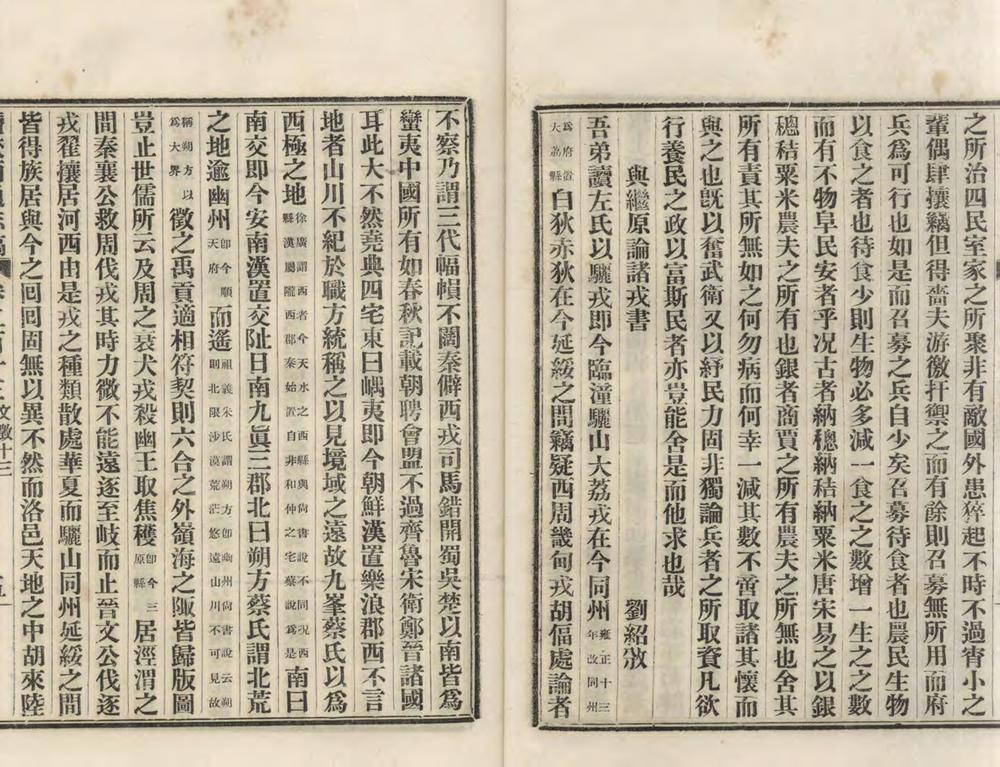 之所治四民室家之所聚非有敵國外患猝起不時不過宵小之
輩偶肆攘竊但得嗇夫游徼扞禦之而有餘則召募無所用而府
兵爲可行也如是而召募之兵自少矣召募待食者也農民生物
以食之者也待食少則生物必多減一食之之數增一生之之數
而有不物阜民安者乎况古者納緫納秸納粟米唐宋易之以銀
緫秸粟米農夫之所有也銀者商賈之所有農夫之所無也舍其
所有責其所無如之何勿病而何幸一減其數不啻取諸其懷而
與之也旣以奮武衛又以紓民力固非獨論兵者之所取資凡欲
行養民之政以富斯民者亦豈能舍是而他求也哉
與繼原論諸戎書
劉紹攽
吾弟讀左氏以驪戎即今臨潼驪山大荔戎在今同州雍正十三年改同州
爲府置大荔縣白狄赤狄在今延綏之間竊疑西周畿甸戎胡偪處論者
不察乃謂三代幅幀不闊秦僻西戎司馬錯開蜀吳楚以南皆爲
蠻夷中國所有如春秋記載朝聘會盟不過齊魯宋衛鄭晉諸國
耳此大不然堯典四宅東曰嵎夷即今朝鮮漢置樂浪郡西不言
地者山川不紀於職方統稱之以見境域之遠故九峯蔡氏以爲
西極之地徐廣謂西者今天水之西縣與尙書說不同況西縣漢屬隴西郡秦始置自非和仲之宅蔡說爲是南曰
南交即今安南漢置交阯日南九眞三郡北曰朔方蔡氏謂北荒
之地逾幽州卽今順天府而遙祖義朱氏謂朔方卽幽州尙書說云朔則北限沙漠荒茫悠遠山川不可見故
稱朔方以爲大界徵之禹貢適相符契則六合之外嶺海之陬皆歸版圖
豈止世儒所云及周之衰犬戎殺幽王取焦穫卽今三原縣居涇渭之
間秦襄公救周伐戎其時力微不能遠逐至岐而止晉文公伐逐
戎翟攘居河西由是戎之種類散處華夏而驪山同州延綏之間
皆得族居與今之回回固無以異不然而洛邑天地之中胡來陸